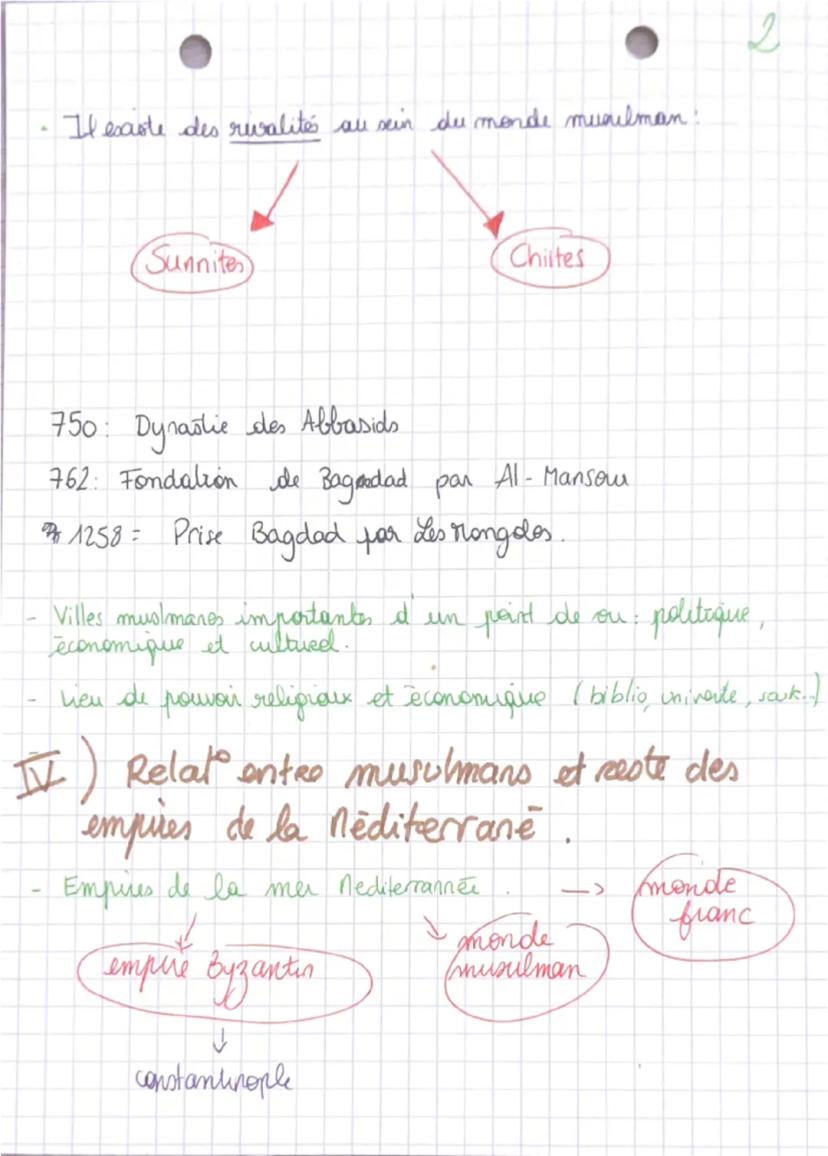 2
· Il existe des rivalités au sein du monde musulman :
Sunnites
Chiites
750 : Dynastie des Abbasids
762 : Fondation de Bagdad par Al-Mansour
1258 = Prise Bagdad par Les Mongoles.
- Villes muslmanes importantes d'un point de vu : politique,
économique et culturel.
- Lieu de pouvoir religieux et économique (biblio, universite, souk..)
IV) Relat° entre musulmans et reste des
empires de la Méditerrané.
- Empires de la mer Mediterrannée. -> monde
franc
empire Byzantin
monde
musulman
constantinople